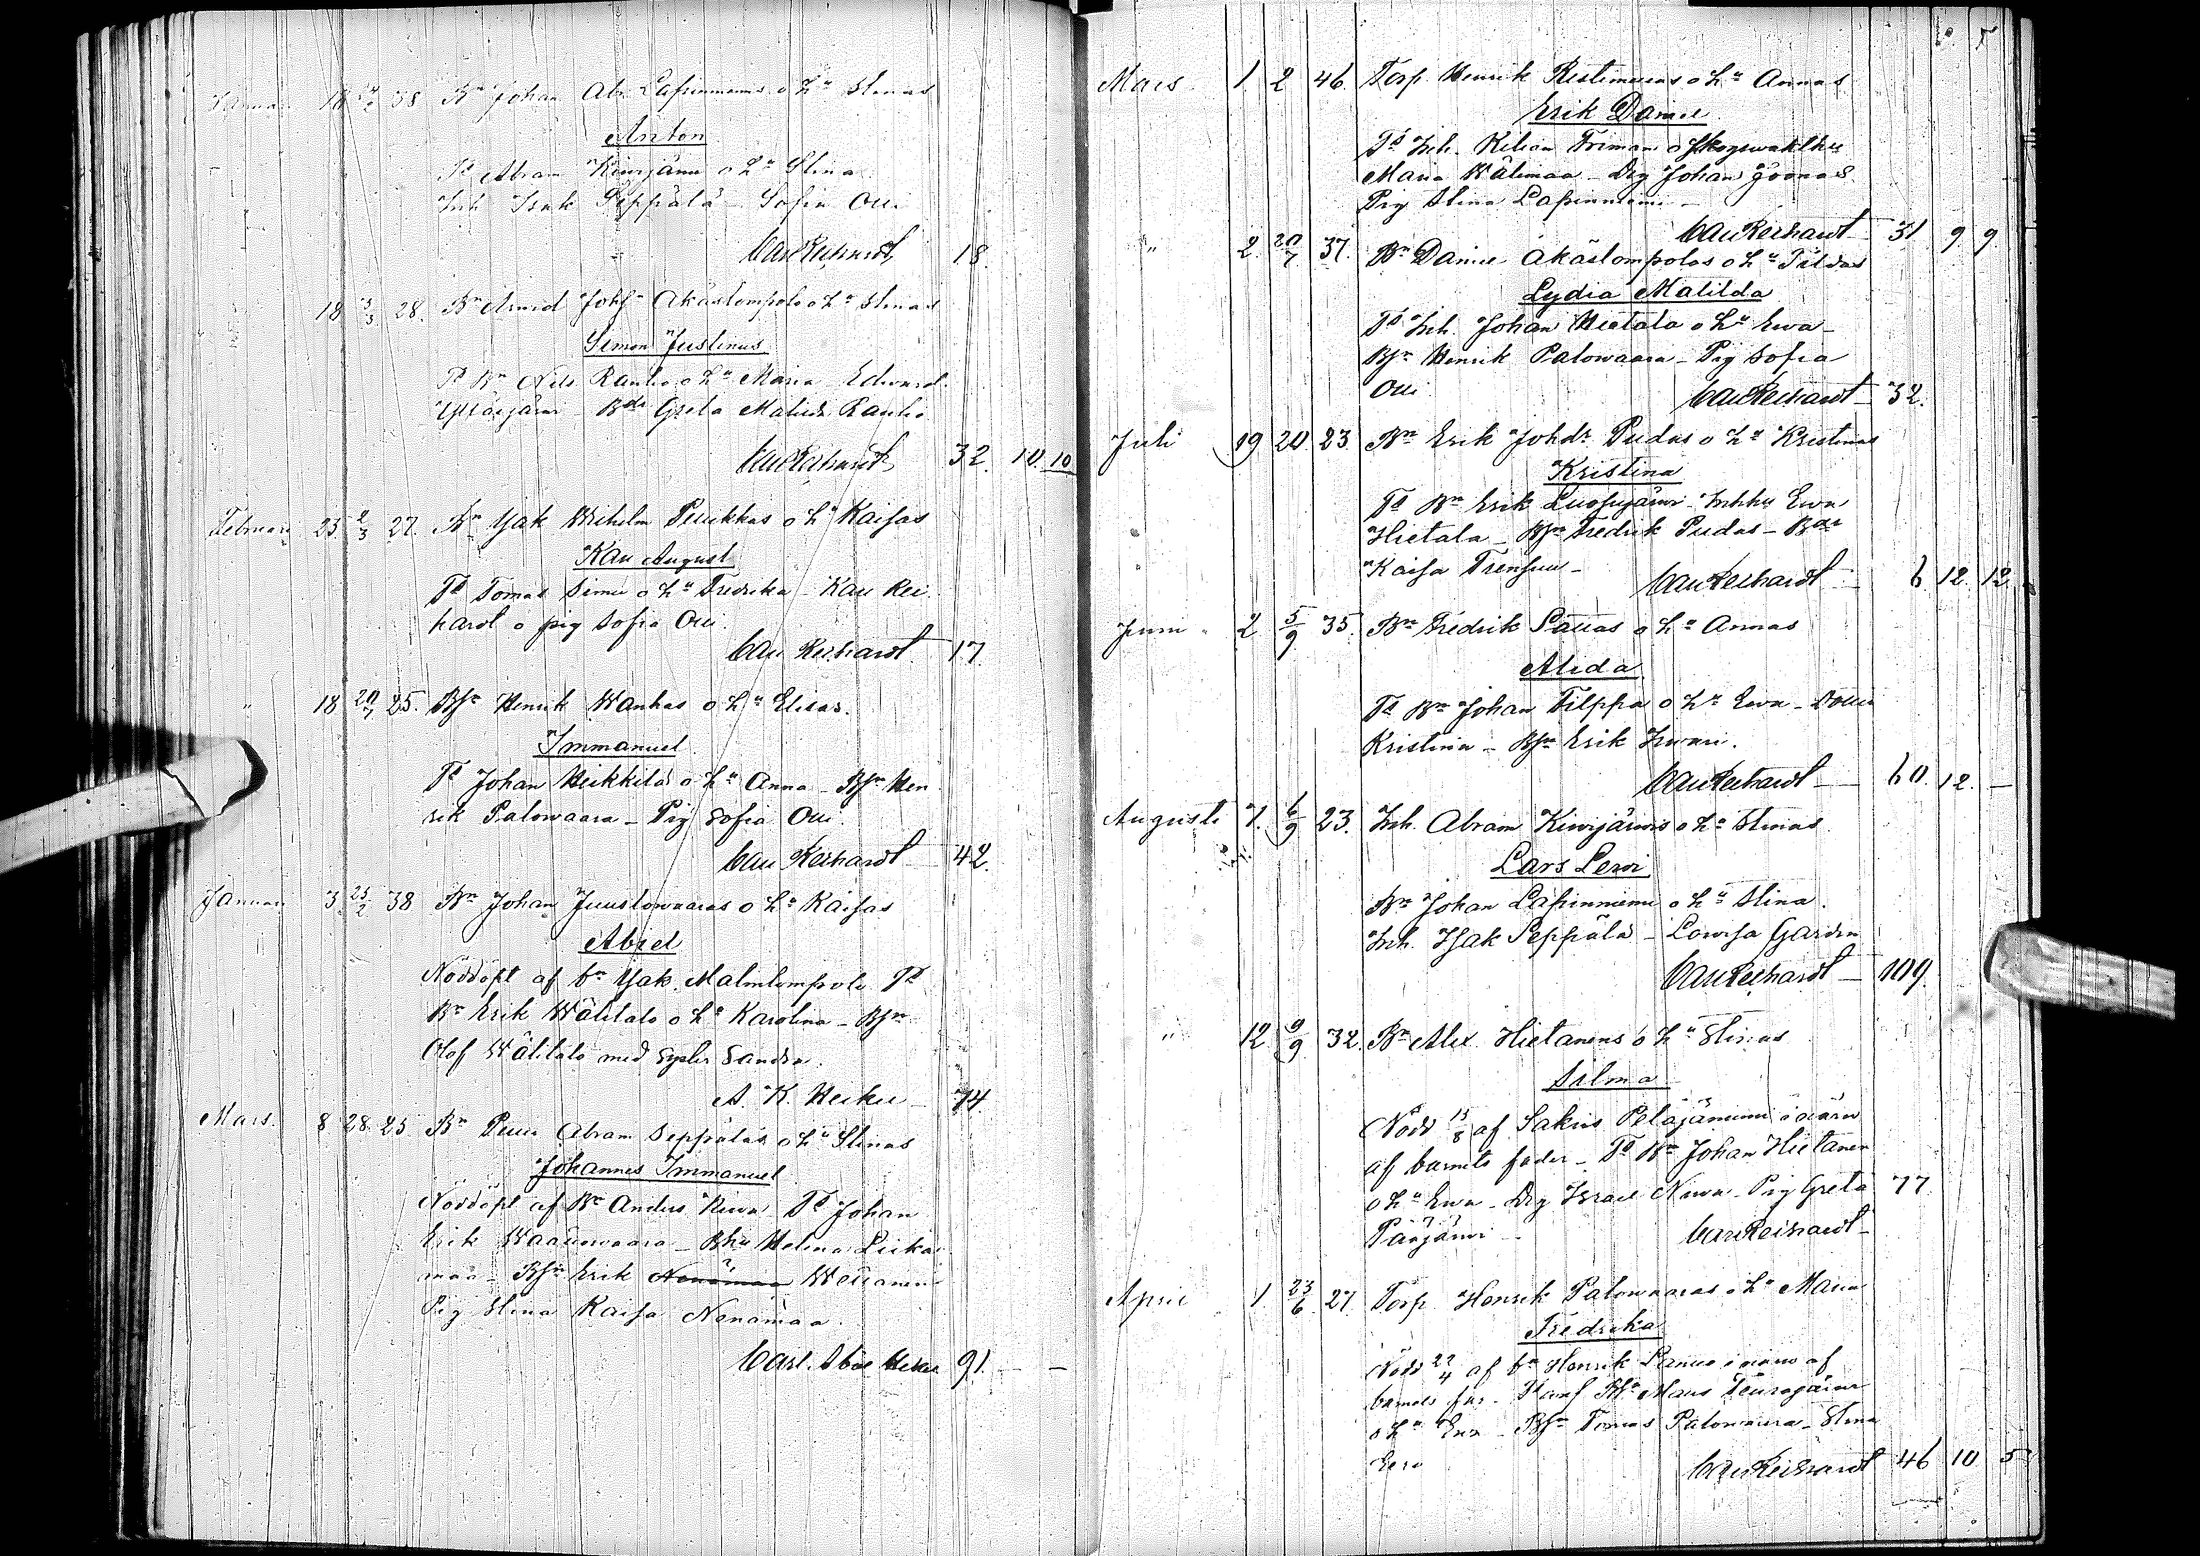 Januari 18 24/2 38 Bn Johan Abr Lapinniemis o hu Stinas
Anton
Td Abram Kiwijärwi o hu Stina
Inh Isak Seppälä - Sofia Olli
Carl Reihardt 18.
18 3/3 28. Bn Arwid Johss Äkäslompolo o hu Stinas
Simon Justinus
Td Bn Nils Rauhio hu Maria - Edward
Ylläsjärwi - Bdr Greta Matilda Rauhi
Carl Reihardt 32. 10. 10
Februari 25 2/3 27. Bn Isak Wilhelm Peuikkas o hu Kaisas
Karl August
Td Tomas Simu o hu Fredrika - Karl Rei
hardt o pig Sofia Olli.
Carl Reihardt. 17.
" 18 20/7 25. Bsn Henrik Wanhas o hu Elisas.
Immanuel
Td Johan Heikkilä o hu Anna - Bsn Hen
rik Palowaara - Pig Sofia Olli.
Carl Reihardt 42.
Januari 3 25/2 38 Bn Johan Juustowaaras o hu Kaisas
Abiel
Nöddöpt af bn Isak Malmlompolo Td
Bn Erik Wälitalo o hu Karolina - Bsn
Olof Wälitalo med syster Sandra.
A. K. Heikel 74.
Mars. 8 28. 25 Bn Abram Seppäläs o hu Stinas
Johannes Immanuel
Nöddöpt af Bn Anders Niwa Td Johan
Erik - Bhu Helena
maa - Bsn Erik Nenämaa
Pig Stina Kaisa Nenämaa.
Carl Abiel Heikel 91. - -
Mars 1. 2 46. Torp. Henrik Ristimellas o hu Annas
Erik Daniel
Td Inh. Kilian Friman o Skogswakthu
Maria Wälimaa - Drg Johan Joonas
Pig Stina Lapinniemi -
Carl Reihardt 31 9 9
" 2. 20/7 37. Bn Daniel Äkäslompolos o hu Tildas
Lydia Matilda
Td Inh. Johan Hietala o hu Ewa -
Bsn Henrik Palowaara - Pig Sofia
Olli Carl Reihardt 32.
Juli 19 20. 23 Bn Erik Johdr Pudas o hu Kristinas
Kristina
Td Bn Erik Luosujärwi - Inhhu Ewa
Hietala - Bsn Fredrik Pudas - Bdr
Kaisa
Carl Reihardt - 6. 12. 12.
Juni 2 5/9 35. Bn Fredrik o hu Annas
Alida
Td Bn Johan Filppa o hu Ewa -
Kristina - Bsn Erik
Carl Reihardt - 60. 12. -
Augusti 7. 6/9 23. Inh. Abram Kiwijärwis o hu Stinas
Lars Lewi
Bn Johan Lapinniemi o hu Stina.
Inh. Isak Seppälä - Lowisa
Carl Reihardt - 109.
" 12 9/9 32. Bn Alex Hietanens o hu Stinas
Silma
Nödd 13/8 af Sakris i närw
af barnets fader - Td Bn Johan Hietanen
o hu Ewa - Drg Israel Niwa - Pig Greta 77
Pääjärwi - Carl Reihardt -
April 1. 23/6 27 Torp. Henrik Palowaaras o hu Maria
Fredrika
Nödd 22/4 af bn Henrik i närw af
barnets far - Bn Mans Teurajärwi
o hu Ewa - Bsn Tomas Palowaara - Stina
Carl Reihardt 46 10 5